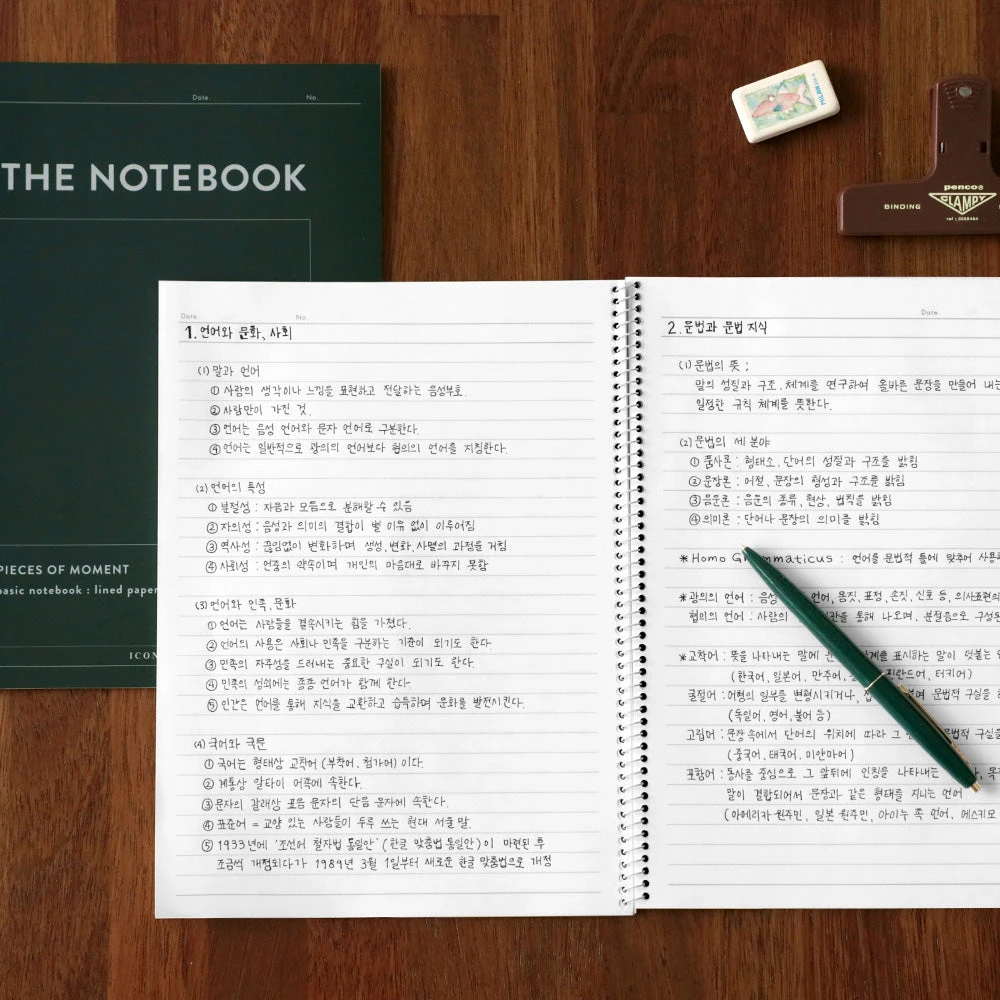 Date.
No.
THE NOTEBOOK
PIECES OF MOMENT
basic notebook : lined paper
ICON
MILAN
penco®
CLAMPY
BINDING
Date.
No.
1. 언어와 문화, 사회
(1) 말과 언어
① 사람의 생각이나 느낌을 표현하고 전달하는 음성부호.
② 사람만이 가진 것.
③ 언어는 음성 언어와 문자 언어로 구분한다.
④ 언어는 일반적으로 광의의 언어보다 협의의 언어를 지칭한다.
(2) 언어의 특성
① 분절성 : 자음과 모음으로 분해할 수 있음
② 자의성 : 음성과 의미의 결합이 별 이유 없이 이루어짐
③ 역사성 : 끊임없이 변화하며 생성, 변화, 사멸의 과정을 거침
④ 사회성 : 언중의 약속이며 개인의 마음대로 바꾸지 못함
(3) 언어와 민족, 문화
① 언어는 사람들을 결속시키는 힘을 가졌다.
② 언어의 사용은 사회나 민족을 구분하는 기준이 되기도 한다.
③ 민족의 자주성을 드러내는 중요한 구실이 되기도 한다.
④ 민족의 성쇠에는 종종 언어가 함께 한다.
⑤ 인간은 언어를 통해 지식을 교환하고 습득하며 문화를 발전시킨다.
(4) 국어와 국문
① 국어는 형태상 교착어 (부착어, 첨가어) 이다.
② 계통상 알타이 어족에 속한다.
③ 문자의 갈래상 표음 문자의 단음 문자에 속한다.
④ 표준어 = 교양 있는 사람들이 두루 쓰는 현대 서울 말.
⑤ 1933년에 '조선어 철자법 통일안' (한글 맞춤법 통일안) 이 마련된 후
조금씩 개정되다가 1989년 3월 1일부터 새로운 한글 맞춤법으로 개정
Date.
2. 문법과 문법 지식
(1) 문법의 뜻 ;
말의 성질과 구조, 체계를 연구하여 올바른 문장을 만들어 내는
일정한 규칙 체계를 뜻한다.
(2) 문법의 세 분야
① 품사론 : 형태소, 단어의 성질과 구조를 밝힘
② 문장론 : 어절, 문장의 형성과 구조를 밝힘
③ 음운론 : 음운의 종류, 현상, 법칙을 밝힘
④ 의미론 : 단어나 문장의 의미를 밝힘
* Homo Grammaticus : 언어를 문법적 틀에 맞추어
* 광의의 언어 : 언어, 몸짓, 표정, 손짓, 신호 등, 의사표현의
협의의 언어 : 사람의 통해 나오며, 분절음으로
* 교착어 : 뜻을 나타내는 말에 표시하는 말이 덧붙는
(한국어, 일본어, 만주어, 핀란드어, 터키어)
굴절어 : 어형의 일부를 변형시키거나, 문법적 구실을
(독일어, 영어, 불어 등)
고립어 : 문장 속에서 단어의 위치에 따라 그 문법적 구실을
(중국어, 태국어, 미얀마어)
포합어 : 동사를 중심으로 그 앞뒤에 인칭을 나타내는
말이 결합되어서 문장과 같은 형태를 지니는 언어
(아메리카 원주민, 일본 원주민, 아이누 족 언어, 에스키모